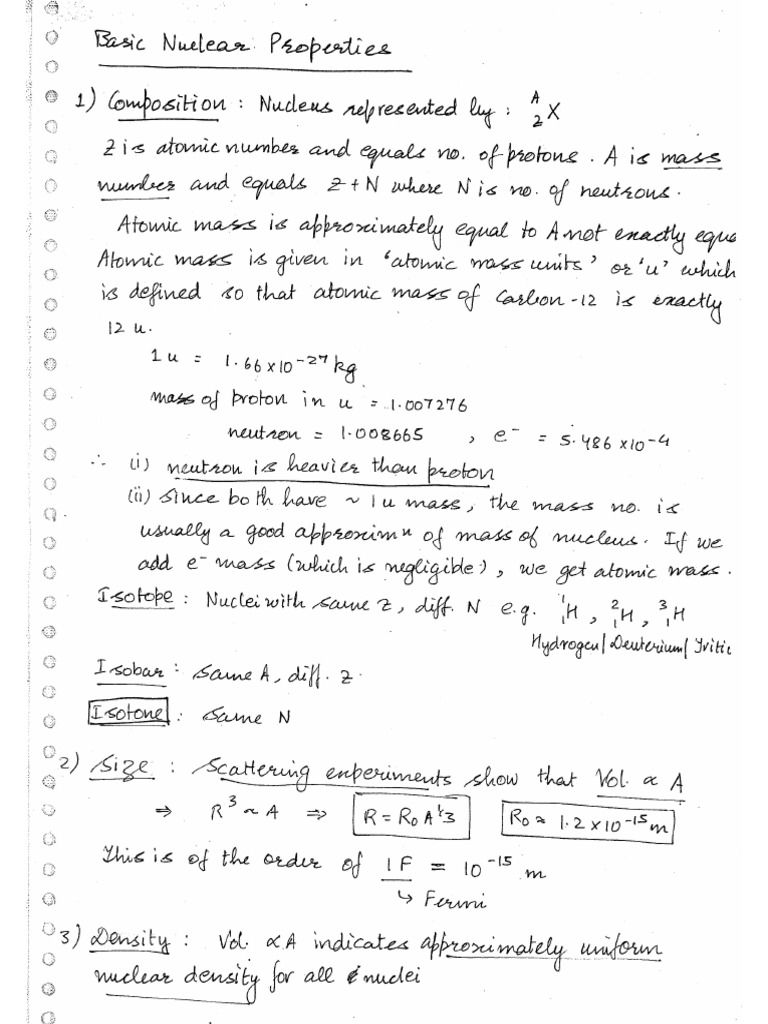 Basic Nuclear Properties
1) Composition : Nucleus represented by : ᴬ_Z X
Z is atomic number and equals no. of protons. A is mass
number and equals Z+N where N is no. of neutrons.
Atomic mass is approximately equal to A not exactly equa
Atomic mass is given in 'atomic mass units' or 'u' which
is defined so that atomic mass of Carbon-12 is exactly
12 u.
1 u = 1.66 x 10⁻²⁷ kg
mass of proton in u = 1.007276
neutron = 1.008665 , e⁻ = 5.486 x10⁻⁴
∴ (i) neutron is heavier than proton
(ii) Since both have ~ 1u mass, the mass no. is
usually a good approximⁿ of mass of nucleus. If we
add e⁻ mass (which is negligible), we get atomic mass.
Isotope : Nuclei with same Z, diff. N e.g. ¹₁H, ²₁H, ³₁H
Hydrogen/Deuterium/Tritiu
Isobar : Same A, diff. Z.
Isotone : Same N
2) Size : Scattering experiments show that Vol. ∝ A
⇒ R³ ~ A ⇒ R = R₀ A^1/3 R₀ ≈ 1.2 x 10⁻¹⁵ m
This is of the order of 1 F = 10⁻¹⁵ m
↳ Fermi
3) Density : Vol. ∝ A indicates approximately uniform
nuclear density for all nuclei